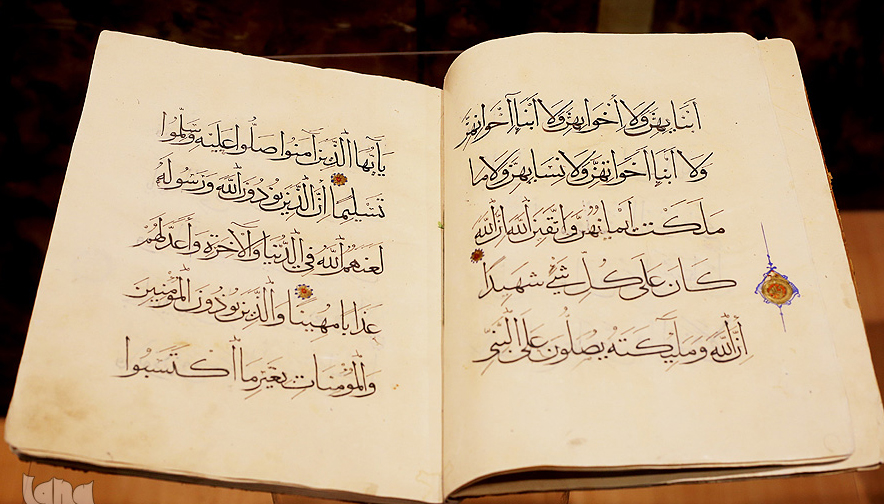 أبنايهن ولا أخوانهن ولا أبنآ أخوانهن
ولا أبنآ أخواتهن ولا نسايهن ولا ما
ملكت أيمانهن واتقين الله إن الله
كان على كل شيء شهيدا
إن الله ومليكته يصلون على النبي
يأيها الذين آمنوا صلوا عليه وسلموا
تسليما إن الذين يؤذون الله ورسوله
لعنهم الله في الدنيا والآخرة وأعد لهم
عذابا مهينا والذين يؤذون المؤمنين
والمؤمنات بغير ما اكتسبوا